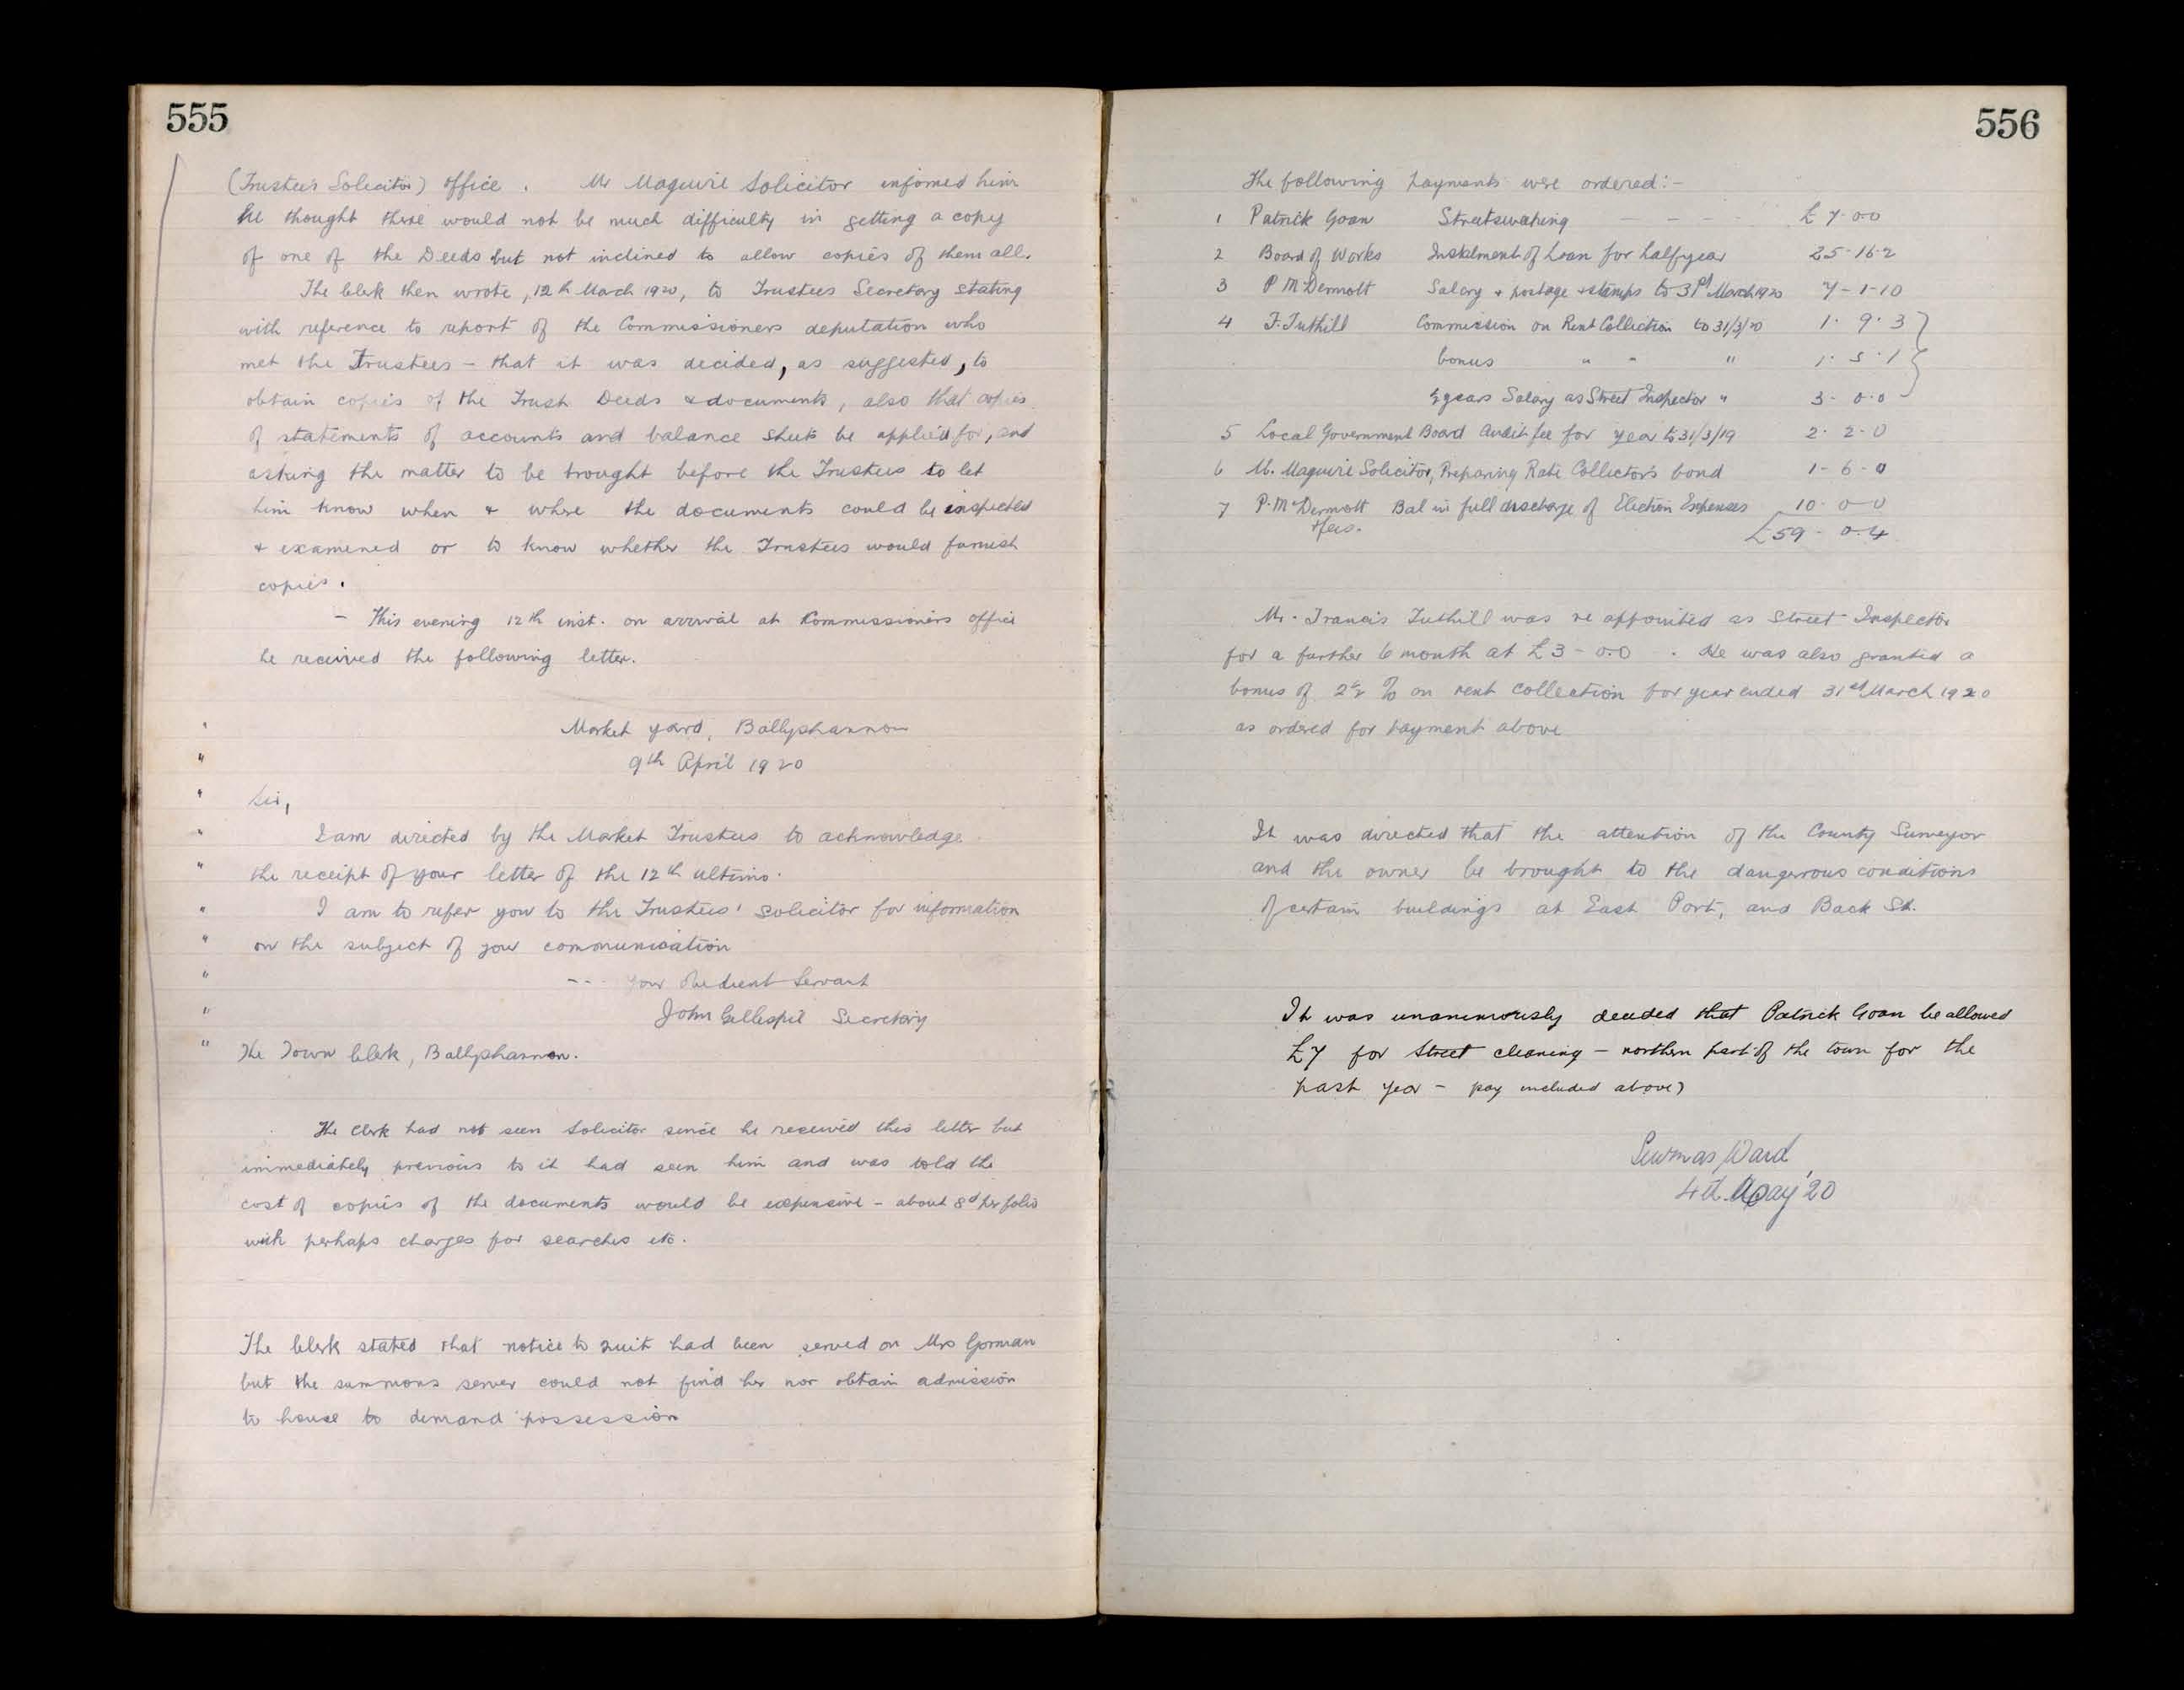 555
(Trustees Solicitor) office. Mr Maguire Solicitor informed him
he thought there would not be much difficulty in getting a copy
of one of the Deeds but not inclined to allow copies of them all.
The Clerk then wrote, 12th March 1920, to Trustees Secretary stating
with reference to report of the Commissioners deputation who
met the Trustees – that it was decided, as suggested, to
obtain copies of the Trust Deeds & documents, also that copies
of statements of accounts and balance sheets be applied for, and
asking the matter to be brought before the Trustees to let
him know when & where the documents could be inspected
& examined or to know whether the Trustees would furnish
copies.
– This evening 12th inst. on arrival at Commissioners office
he received the following letter.
" Market yard, Ballyshannon
" 9th April 1920
" Sir,
" I am directed by the Market Trustees to acknowledge
" the receipt of your letter of the 12th ultimo.
" I am to refer you to the Trustees' Solicitor for information
" on the subject of your communication
" --- your obedient Servant
" John Gillespie Secretary
" The Town Clerk, Ballyshannon.
The Clerk had not seen Solicitor since he received this letter but
immediately previous to it had seen him and was told the
cost of copies of the documents would be expensive – about 8d per folio
with perhaps charges for searches etc.
The Clerk stated that notice to quit had been served on Mrs Gorman
but the summons server could not find her nor obtain admission
to house to demand possession
556
The following payments were ordered:–
1 Patrick Goan Streetsweeping – – – £7·0·0
2 Board of Works Instalment of Loan for half year 25·16·2
3 P McDermott Salary & postage & stamps to 31st March 1920 7–1–10
4 F. Tuthill Commission on Rent Collection to 31/3/20 1·9·3
bonus " " " 1·5·1
½ years Salary as Street Inspector " 3–0·0
5 Local Government Board Audit fee for year to 31/3/19 2·2–0
6 M. Maguire Solicitor, Preparing Rate Collector's bond 1–6–0
7 P. McDermott Bal in full discharge of Election Expenses 10·0–0
& fees. £59–0·4
Mr. Francis Tuthill was re appointed as Street Inspector
for a further 6 month at £3–0·0. He was also granted a
bonus of 2½ % on rent collection for year ended 31st March 1920
as ordered for payment above
It was directed that the attention of the County Surveyor
and the owner be brought to the dangerous conditions
of certain buildings at East Port, and Back St.
It was unanimously decided that Patrick Goan be allowed
£7 for Street cleaning – northern part of the town for the
past year – pay included above)
Seumas Ward
4th May '20